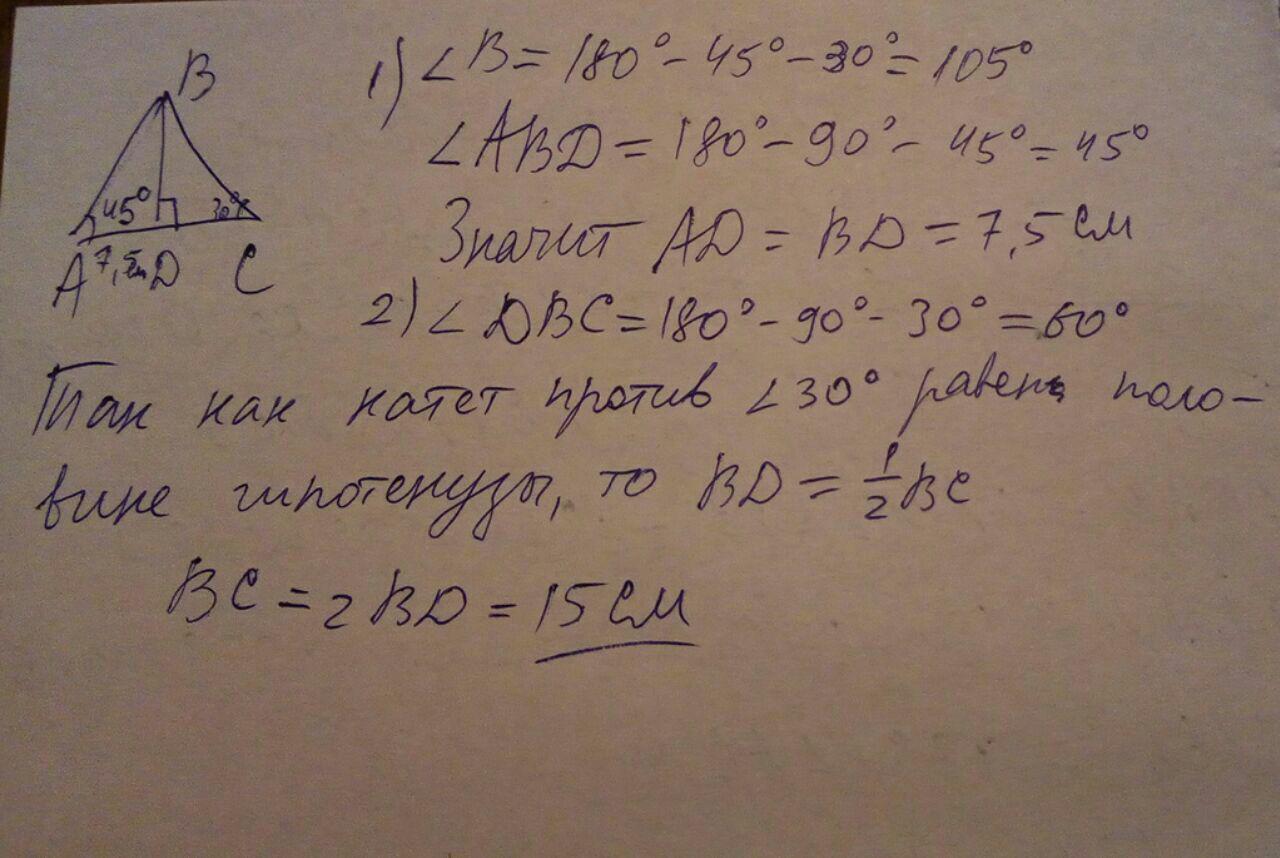 1) ∠B = 180° - 45° - 30° = 105°
B
∠ABD = 180° - 90° - 45° = 45°
45° 30°
Значит AD = BD = 7,5 см
A 7,5см D C
2) ∠DBC = 180° - 90° - 30° = 60°
Так как катет против ∠30° равен поло-
вине гипотенузы, то BD = 1/2 BC
BC = 2 BD = 15 см